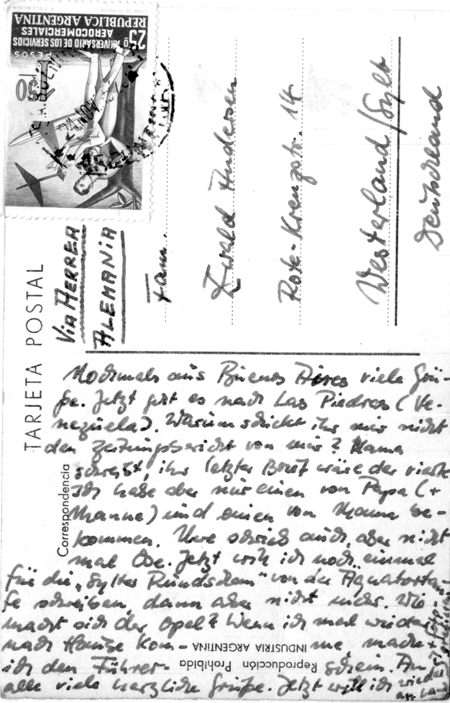 25º ANIVERSARIO DE LOS SERVICIOS
AEROCOMERCIALES
REPUBLICA ARGENTINA
PESOS
TARJETA POSTAL
VIA AERREA
ALEMANIA
Fam.
Ewald Andersen
Rote-Kreuzstr. 14
Westerland/Sylt
Deutschland
Correspondencia
Nochmals aus Buenos Aires viele Grü-
ße. Jetzt geht es nach Las Piedras (Ve-
nezuela). Warum schickt ihr mir nicht
den Zeitungsbericht von mir? Mama
schreibt, ihr letzter Brief wäre der vierte
Ich habe aber nur einen von Papa (+
Hanne) und einen von Mama be-
kommen. Uwe schrieb auch, aber nicht
mal Ose. Jetzt will ich noch einmal
für die „Sylter Rundschau" von der Äquatortau-
fe schreiben, dann aber nicht mehr. Wie
macht sich der Opel? Wenn ich mal wieder
nach Hause kom- me, mache
ich den Führer- schein. An
alle viele herzliche Grüße. Jetzt will ich wieder
an Land
Reproducción Prohibida
INDUSTRIA ARGENTINA